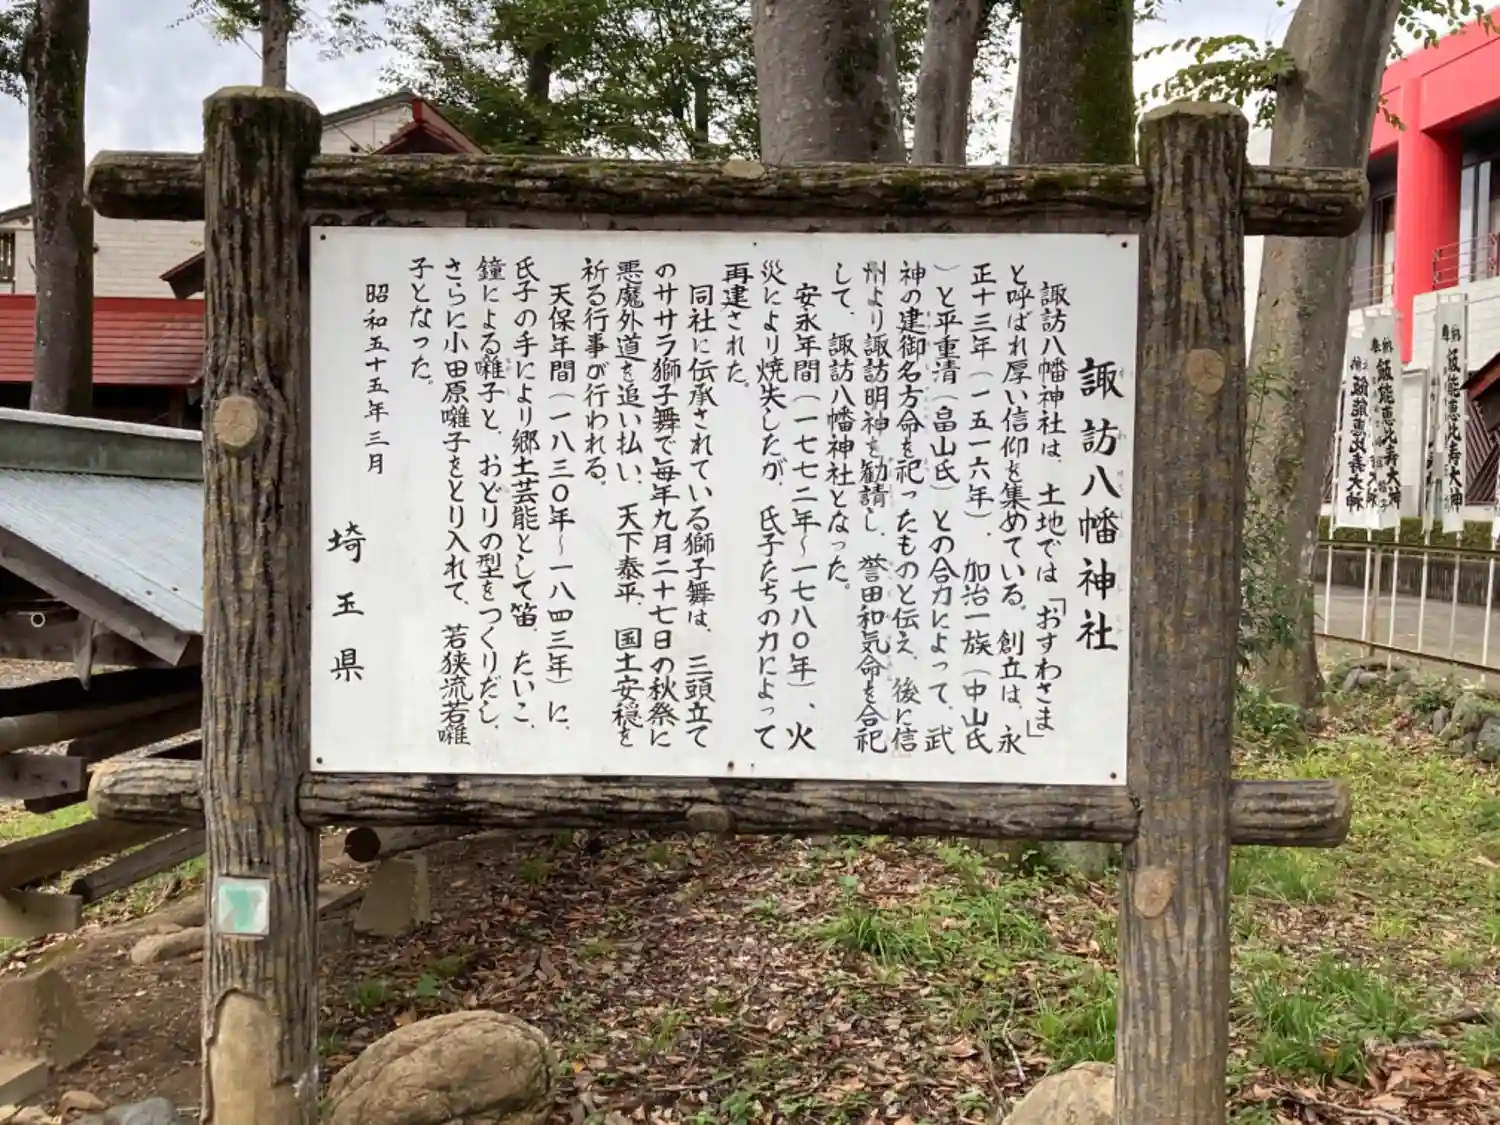 諏訪八幡神社
諏訪八幡神社は、土地では「おすわさま」
と呼ばれ厚い信仰を集めている。創立は、永
正十三年（一五一六年）、加治一族（中山氏
）と平重清（畠山氏）との合力によって、武
神の建御名方命を祀ったものと伝え、後に信
州より諏訪明神を勧請し、誉田和気命を合祀
して、諏訪八幡神社となった。
安永年間（一七七二年～一七八〇年）、火
災により焼失したが、氏子たちの力によって
再建された。
同社に伝承されている獅子舞は、三頭立て
のササラ獅子舞で毎年九月二十七日の秋祭に
悪魔外道を追い払い、天下泰平、国土安穏を
祈る行事が行われる。
天保年間（一八三〇年～一八四三年）に、
氏子の手により郷土芸能として笛、たいこ、
鐘による囃子と、おどりの型をつくりだし、
さらに小田原囃子をとり入れて、若狭流若囃
子となった。
昭和五十五年三月
埼玉県
飯能恵比寿大神
飯能恵比寿大神
飯能恵比寿大神